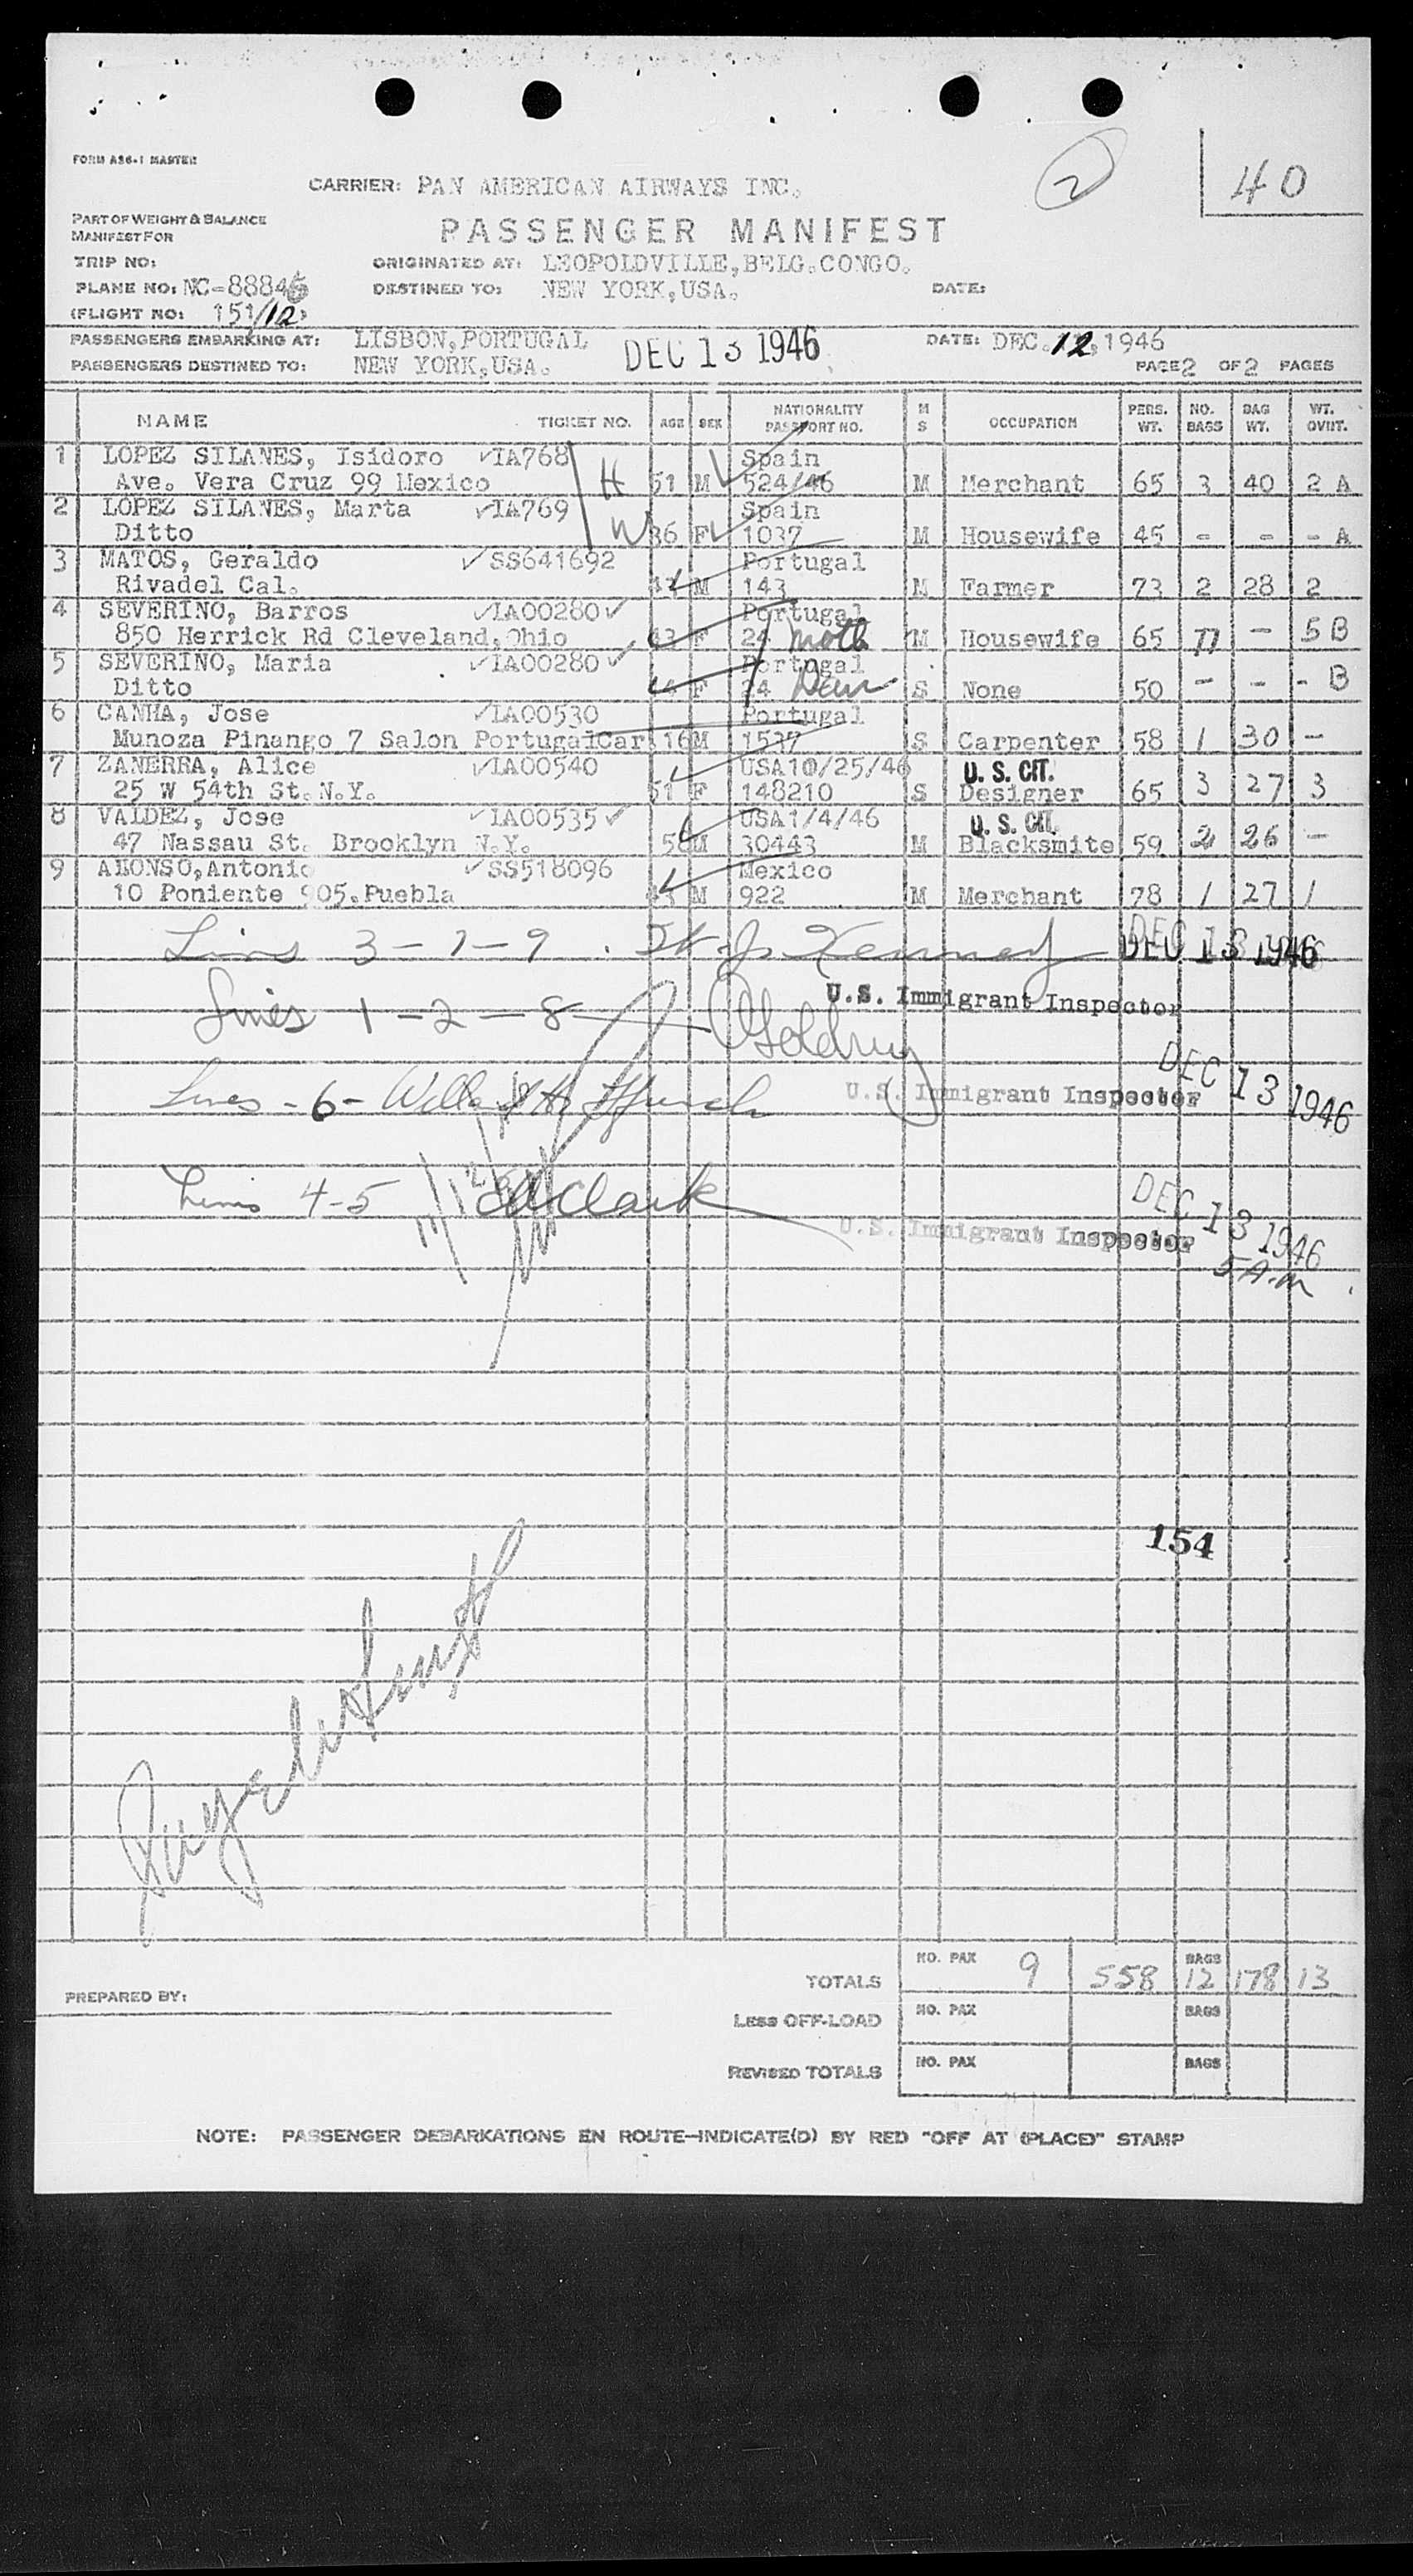 FORM AS6-1 MASTER
2
40
CARRIER: PAN AMERICAN AIRWAYS INC.
PART OF WEIGHT & BALANCE
MANIFEST FOR
PASSENGER MANIFEST
TRIP NO:
ORIGINATED AT: LEOPOLDVILLE,BELG.CONGO.
PLANE NO: NC-88846
DESTINED TO: NEW YORK,USA.
DATE:
(FLIGHT NO: 151/12)
PASSENGERS EMBARKING AT: LISBON,PORTUGAL
DEC 13 1946
DATE: DEC.12,1946
PASSENGERS DESTINED TO: NEW YORK,USA.
PAGE 2 OF 2 PAGES
NAME TICKET NO. AGE SEX NATIONALITY PASSPORT NO. M S OCCUPATION PERS. WT. NO. BAGS BAG WT. WT. OVWT.
1 LOPEZ SILANES, Isidoro IA768 Spain
Ave. Vera Cruz 99 Mexico H 51 M 524/46 M Merchant 65 3 40 2 A
2 LOPEZ SILANES, Marta IA769 Spain
Ditto W 36 F 1037 M Housewife 45 - - - A
3 MATOS, Geraldo SS641692 Portugal
Rivadel Cal. M 143 M Farmer 73 2 28 2
4 SEVERINO, Barros IA00280 Portugal
850 Herrick Rd Cleveland,Ohio 43 F 24 moth M Housewife 65 - 5 B
5 SEVERINO, Maria IA00280 Portugal
Ditto F 24 Dau S None 50 - - - B
6 CANHA, Jose IA00530 Portugal
Munoza Pinango 7 Salon PortugalCar 16 M 1537 S Carpenter 58 1 30 -
7 ZANERRA, Alice IA00540 USA10/25/46 U. S. CIT.
25 W 54th St.N.Y. 51 F 148210 S Designer 65 3 27 3
8 VALDEZ, Jose IA00535 USA1/4/46 U. S. CIT.
47 Nassau St. Brooklyn N.Y. M 30443 M Blacksmite 59 2 26 -
9 ALONSO,Antonio SS518096 Mexico
10 Poniente 905.Puebla 43 M 922 M Merchant 78 1 27 1
Lines 3-7-9 Kennedy DEC 13 1946
U.S. Immigrant Inspector
Lines 1-2-8
DEC 13 1946
Lines -6-
U.S. Immigrant Inspector
Lines 4-5 Clark
DEC 13 1946
U.S. Immigrant Inspector
5 A.M
154
TOTALS NO. PAX 9 558 BAGS 12 178 13
PREPARED BY:
LESS OFF-LOAD NO. PAX BAGS
REVISED TOTALS NO. PAX BAGS
NOTE: PASSENGER DEBARKATIONS EN ROUTE-INDICATE(D) BY RED "OFF AT (PLACE)" STAMP